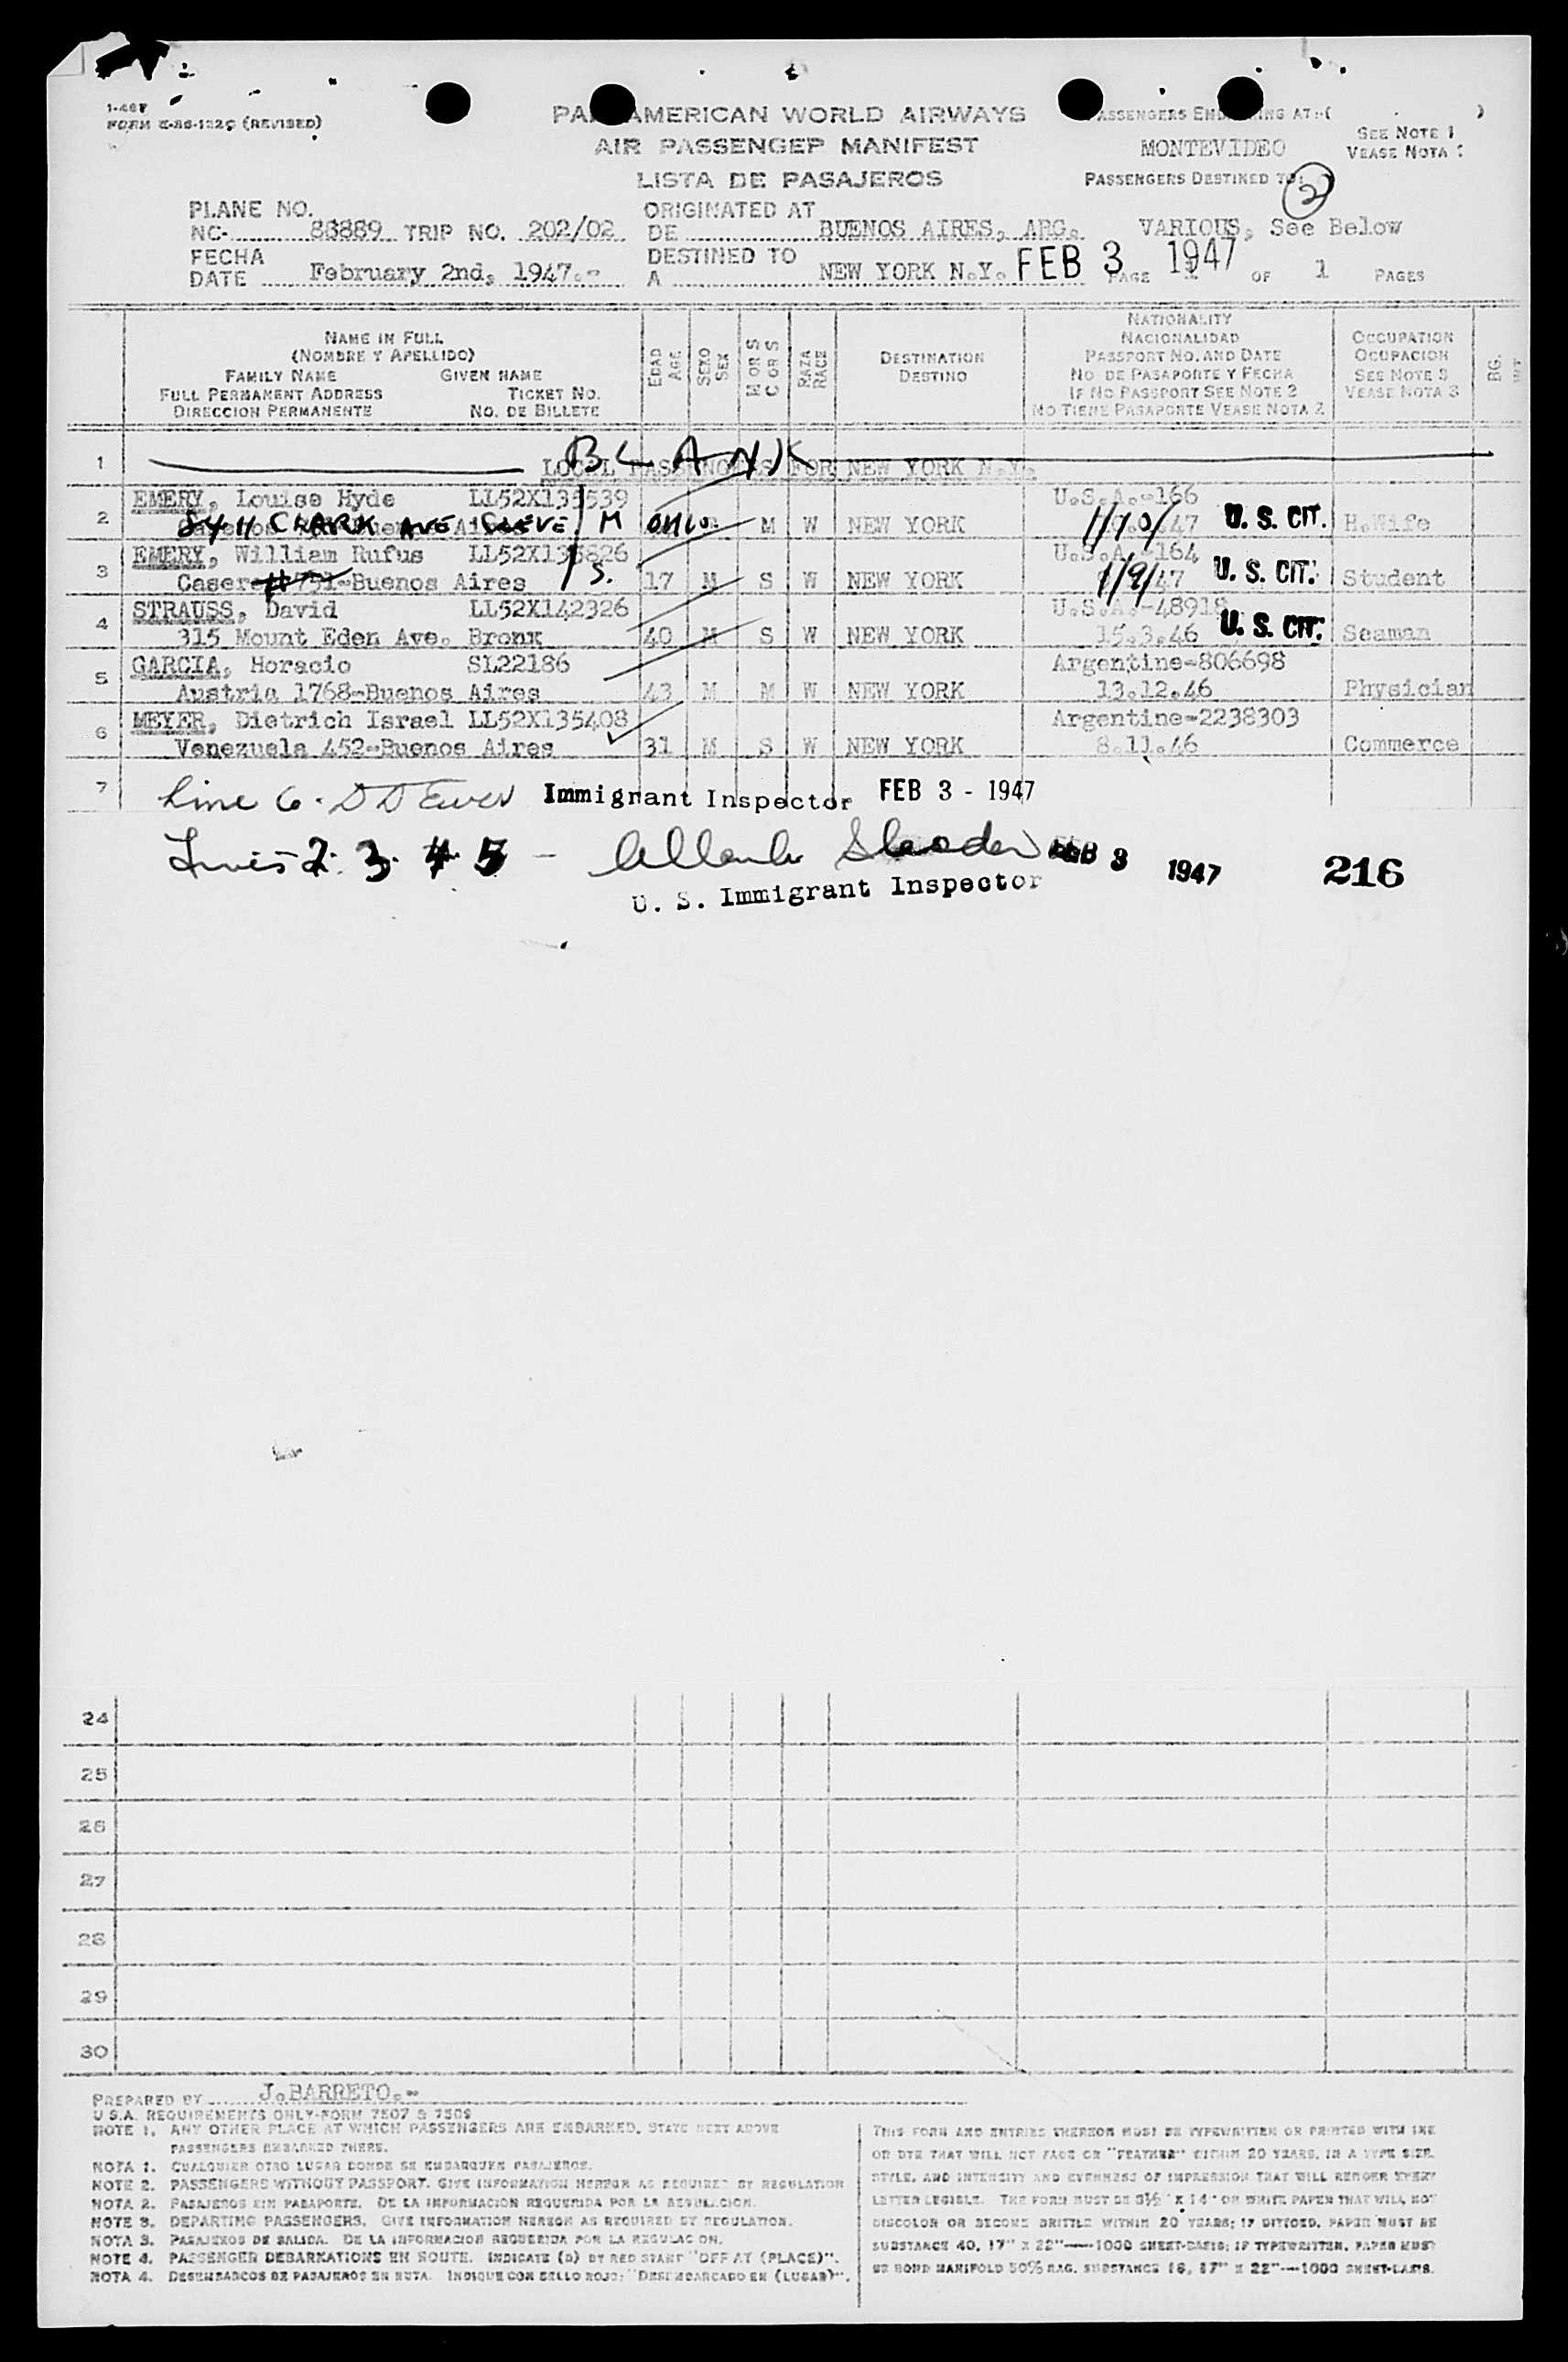 I-467
FORM E-86-122C (REVISED)
PAN AMERICAN WORLD AIRWAYS
AIR PASSENGER MANIFEST
LISTA DE PASAJEROS
PASSENGERS ENDORSING AT:-( )
MONTEVIDEO
SEE NOTE 1
VEASE NOTA 1
PASSENGERS DESTINED TO:
2
VARIOUS, See Below
PLANE NO.
NC- 88889 TRIP NO. 202/02
ORIGINATED AT
DE BUENOS AIRES, ARG.
FECHA
DATE February 2nd, 1947.-
DESTINED TO
A NEW YORK N.Y. FEB 3 1947
PAGE 1 OF 1 PAGES
NAME IN FULL
(NOMBRE Y APELLIDO)
FAMILY NAME GIVEN NAME
FULL PERMANENT ADDRESS TICKET NO.
DIRECCION PERMANENTE NO. DE BILLETE
EDAD AGE
SEXO SEX
M OR S C OR S
RAZA RACE
DESTINATION
DESTINO
NATIONALITY
NACIONALIDAD
PASSPORT NO. AND DATE
NO DE PASAPORTE Y FECHA
IF NO PASSPORT SEE NOTE 2
NO TIENE PASAPORTE VEASE NOTA 2
OCCUPATION
OCUPACION
SEE NOTE 3
VEASE NOTA 3
BG. WT
1 BLANK
LOCAL PASSENGERS FOR NEW YORK N.Y.
2 EMERY, Louise Hyde LL52X135539 U.S.A.-166
8411 CLARK AVE CLEVE OHIO M M W NEW YORK 1/10/47 U. S. CIT. H.Wife
3 EMERY, William Rufus LL52X135826 U.S.A.-164
Caseros #751-Buenos Aires S. 17 M S W NEW YORK 1/9/47 U. S. CIT. Student
4 STRAUSS, David LL52X142326 U.S.A.-48918
315 Mount Eden Ave. Bronx 40 M S W NEW YORK 15.3.46 U. S. CIT. Seaman
5 GARCIA, Horacio SL22186 Argentine-806698
Austria 1768-Buenos Aires 43 M M W NEW YORK 13.12.46 Physician
6 MEYER, Dietrich Israel LL52X135408 Argentine-2238303
Venezuela 452-Buenos Aires 31 M S W NEW YORK 8.11.46 Commerce
7
Line 6. Immigrant Inspector FEB 3 - 1947
Lines 2. 3. 4. 5 - FEB 3 1947 216
U. S. Immigrant Inspector
24
25
26
27
28
29
30
PREPARED BY J.BARRETO.-
U.S.A. REQUIREMENTS ONLY-FORM 7507 & 7509
NOTE 1. ANY OTHER PLACE AT WHICH PASSENGERS ARE EMBARKED, STATE NEXT ABOVE
PASSENGERS EMBARKED THERE.
NOTA 1. CUALQUIER OTRO LUGAR DONDE SE EMBARQUEN PASAJEROS.
NOTE 2. PASSENGERS WITHOUT PASSPORT. GIVE INFORMATION HEREON AS REQUIRED BY REGULATION
NOTA 2. PASAJEROS SIN PASAPORTE. DE LA INFORMACION REQUERIDA POR LA REGULACION.
NOTE 3. DEPARTING PASSENGERS. GIVE INFORMATION HEREON AS REQUIRED BY REGULATION.
NOTA 3. PASAJEROS DE SALIDA. DE LA INFORMACION REQUERIDA POR LA REGULACION.
NOTE 4. PASSENGER DEBARKATIONS EN ROUTE. INDICATE (D) BY RED STAMP "OFF AT (PLACE)".
NOTA 4. DESEMBARCOS DE PASAJEROS EN RUTA. INDIQUE CON SELLO ROJO: "DESEMBARCADO EN (LUGAR)".
THIS FORM AND ENTRIES THEREON MUST BE TYPEWRITTEN OR PRINTED WITH INK
OR DYE THAT WILL NOT FADE OR "FEATHER" WITHIN 20 YEARS, IN A TYPE SIZE,
STYLE, AND INTENSITY AND EVENNESS OF IMPRESSION THAT WILL RENDER EVERY
LETTER LEGIBLE. THE FORM MUST BE 8½" X 14" ON WHITE PAPER THAT WILL NOT
DISCOLOR OR BECOME BRITTLE WITHIN 20 YEARS; IF DITTOED, PAPER MUST BE
SUBSTANCE 40, 17" X 22"-1000 SHEET-BASIS; IF TYPEWRITTEN, PAPER MUST
BE BOND MANIFOLD 50% RAG, SUBSTANCE 16, 17" X 22"-1000 SHEET-BASIS.